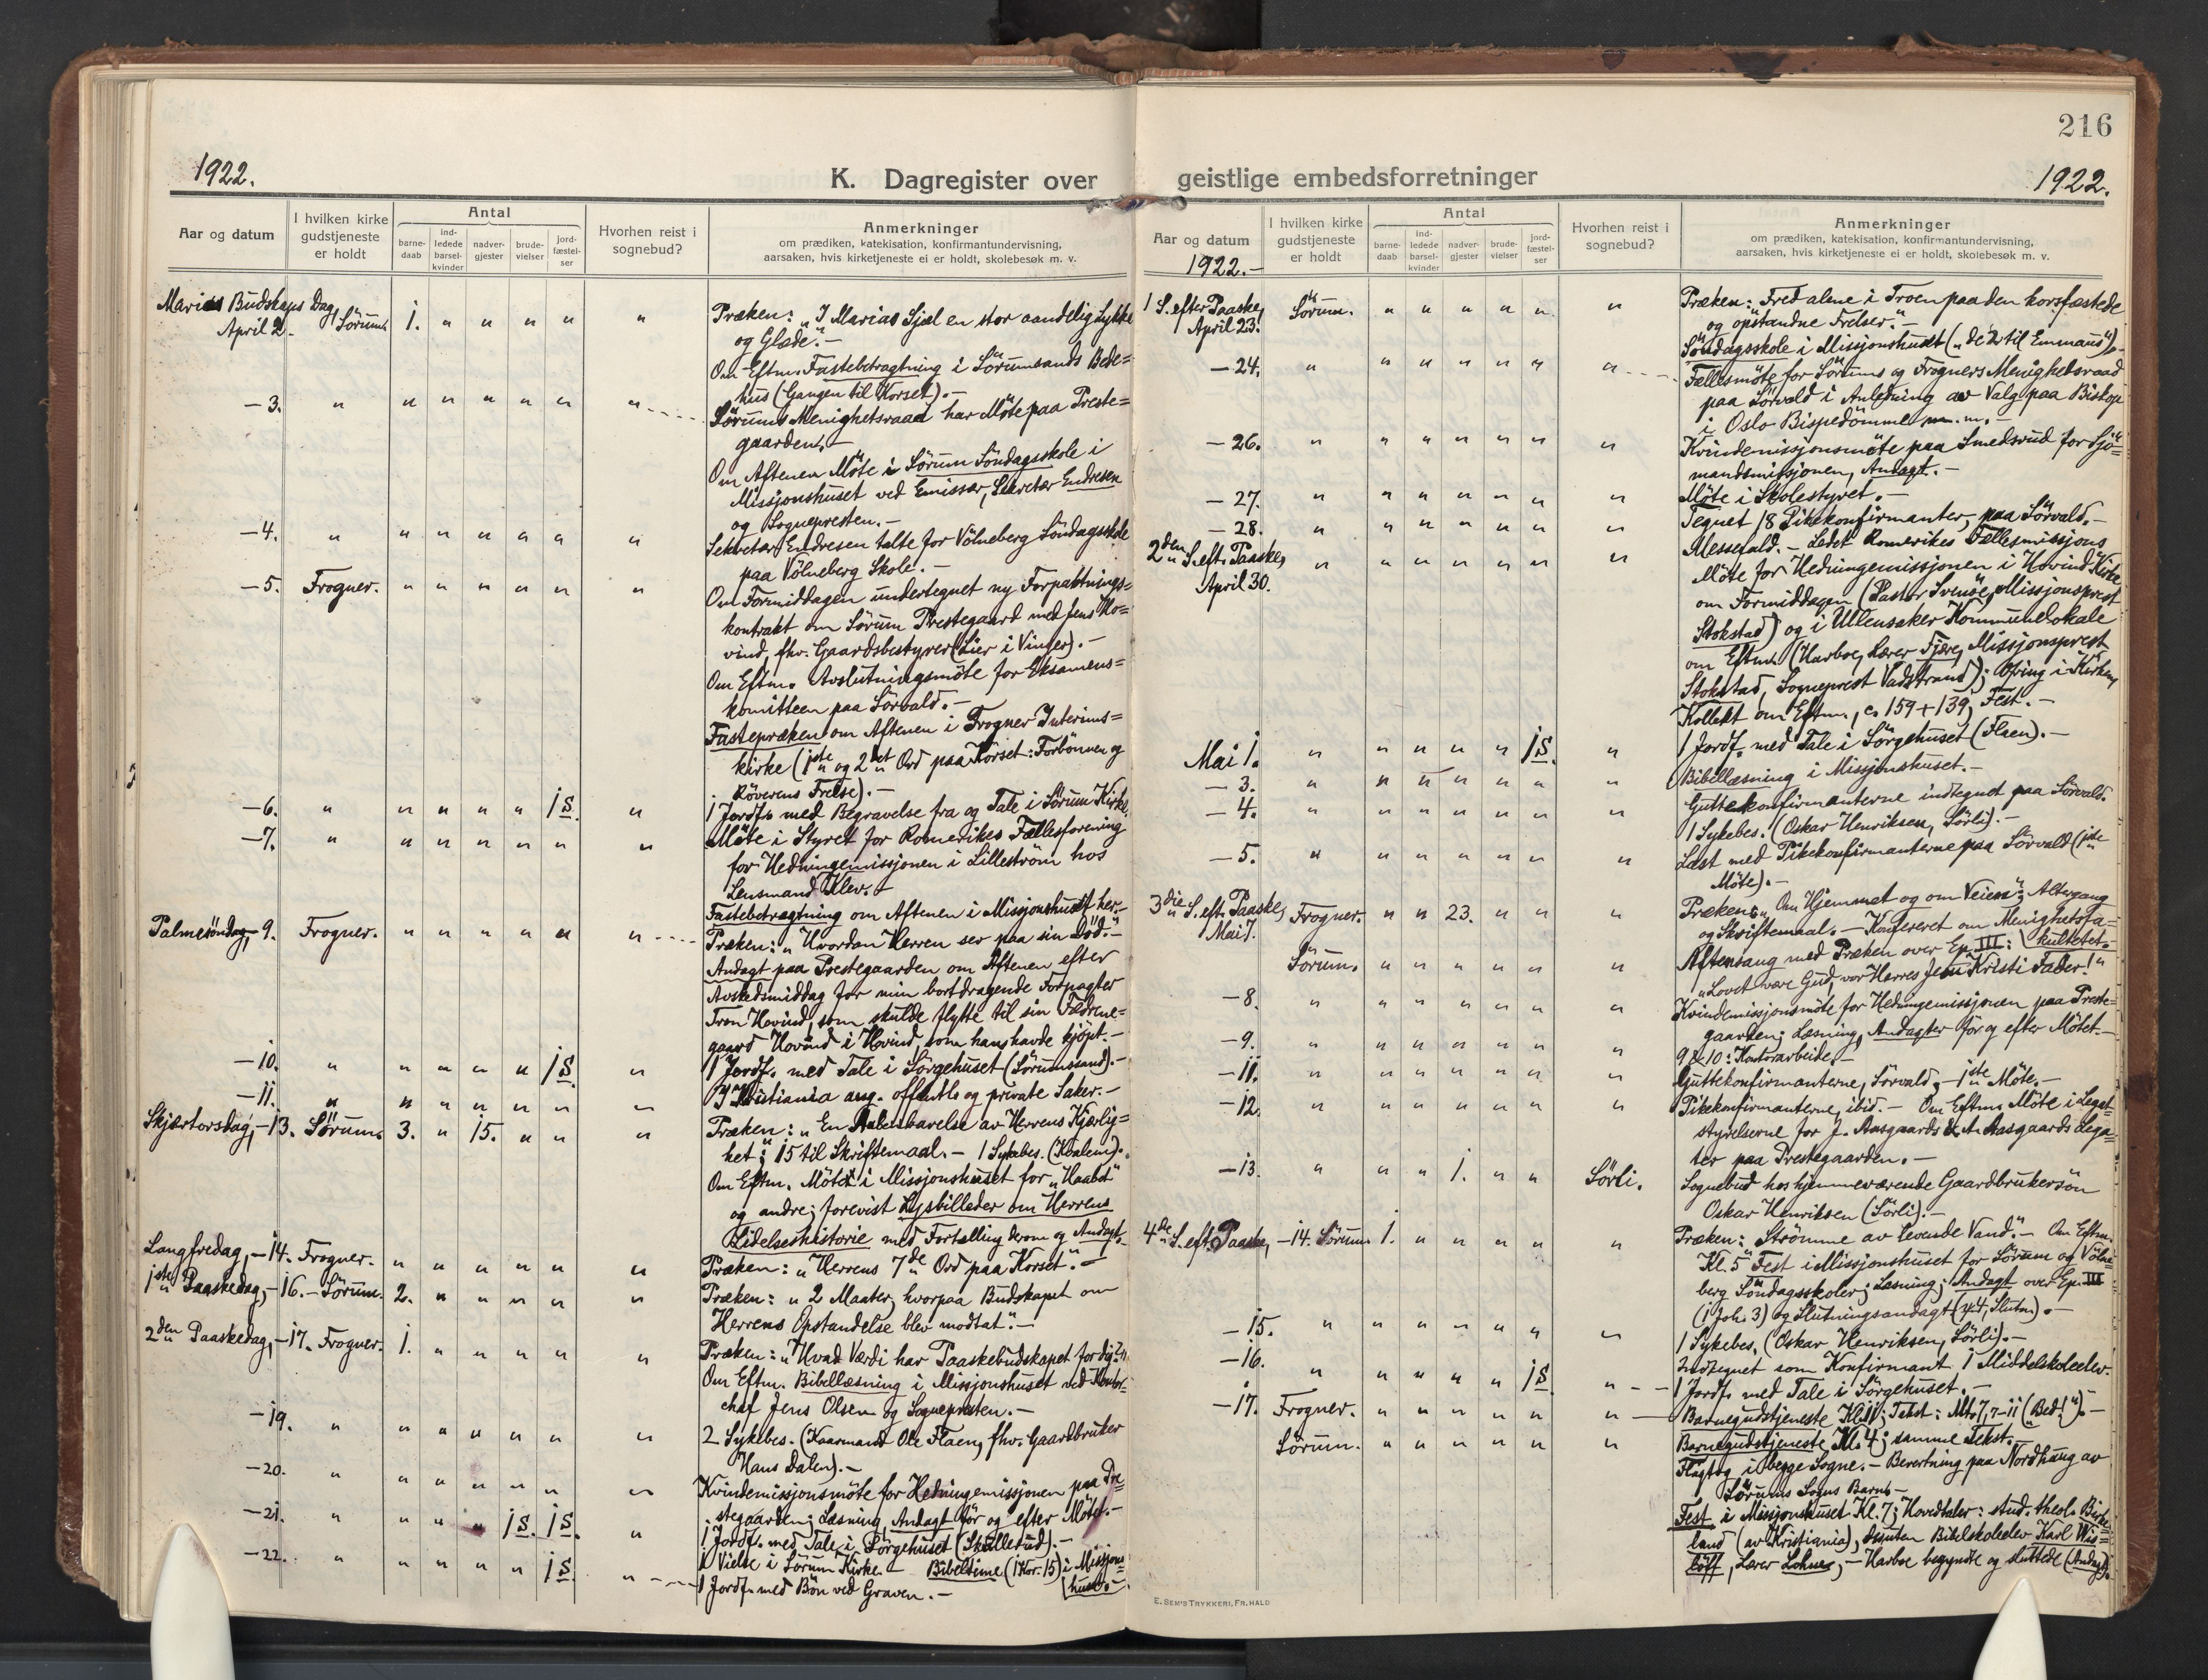 216
1922.
K. Dagregister over
Aar og datum
I hvilken kirke gudstjeneste er holdt
Antal
barne-daab
ind-ledede barsel-kvinder
nadver-gjester
brude-vielser
jord-fæstel-ser
Hvorhen reist i sognebud?
Anmerkninger
om prædiken, katekisation, konfirmantundervisning,
aarsaken, hvis kirketjeneste ei er holdt, skolebesøk m. v.
Marias Budskaps Dag,
April 2. Sørum. 1. " " " " " Præken: "I Marias Sjæl en stor aandelig Lykke
og Glæde". -
Om Eftm. Fastebetragtning i Sörumsands Bede=
hus (Gangen til Korset). -
- 3. " " " " " " " Sørums Menighetsraad har Möte paa Preste=
gaarden. -
Om Aftenen Möte i Sørum Söndagsskole i
Missjonshuset ved Emissær, Sekretær Endresen
og Sognepresten. -
- 4. " " " " " " " Sekretær Endresen talte for Völneberg Söndagsskole
paa Völneberg Skole. -
- 5. Frogner. " " " " " " Om Formiddagen undertegnet ny Forpaktnings=
kontrakt om Sörum Prestegaard med Jens Ho=
vind, fhv. Gaardsbestyrer (Lier i Vinger). -
Om Eftm. Avslutningsmöte for Eksamens=
komitteen paa Sörvald. -
Fastepræken om Aftenen i Frogner Interims=
kirke (1ste og 2det Ord paa Korset: Forbönnen og
Röverens Frelse). -
- 6. " " " " " 1 S. " 1 Jordf. med Begravelse fra og Tale i Sørum Kirke.
- 7. " " " " " " " Möte i Styret for Romerikes Fællesforening
for Hedningemissjonen i Lilleström hos
Lensmand Klev. -
Fastebetragtning om Aftenen i Missjonshuset her. -
Palmesöndag, - 9. Frogner. " " " " " " Præken: "Hvordan Herren ser paa sin Död". -
Andagt paa Prestegaarden om Aftenen efter
Avskedsmiddag for min bortdragende Forpagter
Tron Hovind, som skulde flytte til sin Fædrene=
gaard Hovind i Hovind, som han havde kjöpt. -
- 10. " " " " " 1 S. " 1 Jordf. med Tale i Sörgehuset (Sörumssand). -
- 11. " " " " " " " I Kristiania ang. offentl. og private Saker. -
Skjærtorsdag, - 13. Sørum. 3. " 15. " " " Præken: "En Aabenbarelse av Herrens Kjærlig=
het"; 15 til Skriftemaal. - 1 Sykebes. (Kvalem).
Om Eftm. Mötet i Missjonshuset for "Haabet"
og andre; forevist Lysbilleder om Herrens
Lidelseshistorie med Fortælling derom og Andagt. -
Langfredag, - 14. Frogner. " " " " " " Præken: "Herrens 7de Ord paa Korset". -
1ste Paaskedag, - 16. - Sørum. 2. " " " " " Præken: "2 Maater, hvorpaa Budskapet om
Herrens Opstandelse blev modtat". -
2den Paaskedag, - 17. Frogner. 1. " " " " " Præken: "Hvad Værdi har Paaskebudskapet for dig?"
Om Eftm. Bibellæsning i Missjonshuset ved Kontor=
chef Jens Olsen og Sognepresten. -
- 19. " " " " " " " 2 Sykebes. (Kaarmand Ole Flaen, fhv. Gaardbruker
Hans Dalen). -
- 20. " " " " " " " Kvindemissjonsmöte for Hedningemissjonen paa Pre=
stegaarden; Læsning, Andagt för og efter Mötet. -
- 21. " " " " 1 S. 1 S. " 1 Jordf. med Tale i Sörgehuset (Skullerud). -
1 Vielse i Sørum Kirke. - Bibeltime (1 Kor. 15) i Missjons=
huset. -
- 22. " " " " " 1 S. " 1 Jordf. med Bön ved Graven. -
geistlige embedsforretninger
1922.
Aar og datum
1922. -
I hvilken kirke gudstjeneste er holdt
Antal
barne-daab
ind-ledede barsel-kvinder
nadver-gjester
brude-vielser
jord-fæstel-ser
Hvorhen reist i sognebud?
Anmerkninger
om prædiken, katekisation, konfirmantundervisning,
aarsaken, hvis kirketjeneste ei er holdt, skolebesøk m. v.
1 S. efter Paaske,
April 23. Sörum. " " " " " " Præken: Fred alene i Troen paa den korsfæstede
og opstandne Frelser". -
Söndagsskole i Missjonshuset ("de 2 til Emmaus"). -
- 24. " " " " " " " Fællesmöte for Sörums og Frogners Menighetsraad
paa Sörvald i Anledning av Valg paa Bishop
i Oslo Bispedömme m. m. -
- 26. " " " " " " " Kvindemissjonsmöte paa Smedsrud for Sjö=
mandsmissjonen, Andagt. -
- 27. " " " " " " " Möte i Skolestyret. -
- 28. " " " " " " " Tegnet 18 Pikekonfirmanter, paa Sörvald. -
2den S. eft. Paaske,
April 30. " " " " " " " Messefald. - Ledet Romerikes Fællesmissjons
Möte for Hedningemissjonen i Hovind Kirke
om Formiddagen (Pastor Svensöe, Missjonsprest
Stokstad) og i Ullensaker Kommunelokale
om Eftm. (Harboe, Lærer Fjære, Missjonsprest
Stokstad, Sogneprest Vadstrand); Ofring i Kirken,
Kollekt om Eftm., c. 159 + 139, Fest. -
Mai 1. " " " " " 1 S. " 1 Jordf. med Tale i Sörgehuset (Flaen). -
- 3. " " " " " " " Bibellæsning i Missjonshuset. -
- 4. " " " " " " " Guttekonfirmanterne indtegnet paa Sörvald.
1 Sykebes. (Oskar Henriksen, Sörli). -
- 5. " " " " " " " Læst med Pikekonfirmanterne paa Sörvald (1ste
Möte). -
3die S. eft. Paaske,
Mai 7. Frogner. " " 23. " " " Præken: "Om Hjemmet og om Veien"; Altergang
og Skriftemaal. - Konfereret om Menighetsfa=
kultetet. -
Sörum. " " " " " " Aftensang med Præken over Ep. III:
"Lovet være Gud, vor Herres Jesu Kristi Fader!"
- 8. " " " " " " " Kvindemissjonsmöte for Hedningemissjonen paa Preste=
gaarden; Læsning, Andagter för og efter Mötet. -
- 9. " " " " " " " 9 & 10: Kontorarbeide. -
- 11. " " " " " " " Guttekonfirmanterne, Sörvald, - 1ste Möte. -
- 12. " " " " " " " Pikekonfirmanterne, ibid. - Om Eftm. Möte i Legat=
styrelserne for J. Aasgaards & A. Aasgaards Lega=
ter paa Prestegaarden. -
- 13. " " " 1. " " Sörli. Sognebud hos hjemmeværende Gaardbrukersön
Oskar Henriksen (Sörli). -
4de S. eft. Paaske, - 14. Sörum 1. " " " " " Præken: Strömme av levende Vand". - Om Eftm.
Kl. 5 Fest i Missjonshuset for Sörum og Völne=
berg Söndagsskoler; Læsning; Andagt over Ep. III
(1 Joh. 3) og Slutningsandagt (ψ 4, Slutn). -
- 15. " " " " " " " 1 Sykebes. (Oskar Henriksen, Sörli). -
- 16. " " " " " 1 S. " Indtegnet som Konfirmant 1 Middelskoleelev.
1 Jordf. med Tale i Sörgehuset. -
- 17. Frogner. " " " " " " Barnegudstjeneste Kl. 11; Tekst: Mt. 7, 7-11 ("Bed!"). -
Sörum. " " " " " " Barnegudstjeneste Kl. 4; samme Tekst. -
Flagtog i begge Sogne. - Bevertning paa Nordhaug av
Sörums Sogns Barn. -
Fest i Missjonshuset Kl. 7; Hovedtaler: stud. theol. Birke=
land (av Kristiania), desuten Bibelskoleelev Karl Wis=
löff, Lærer Lohne, - Harboe begyndte og sluttede (Andagt).
E. SEM'S TRYKKERI, FR.HALD